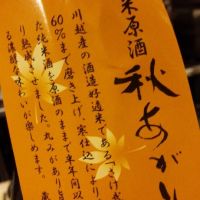 米原酒
秋あがり
川越産の酒造好適米である
60%まで磨き上げ、寒仕込により
た純米酒を原酒のままで半年間以
り熟成
ました。丸みがあり
る濃醇
わいが楽しめます。
蔵